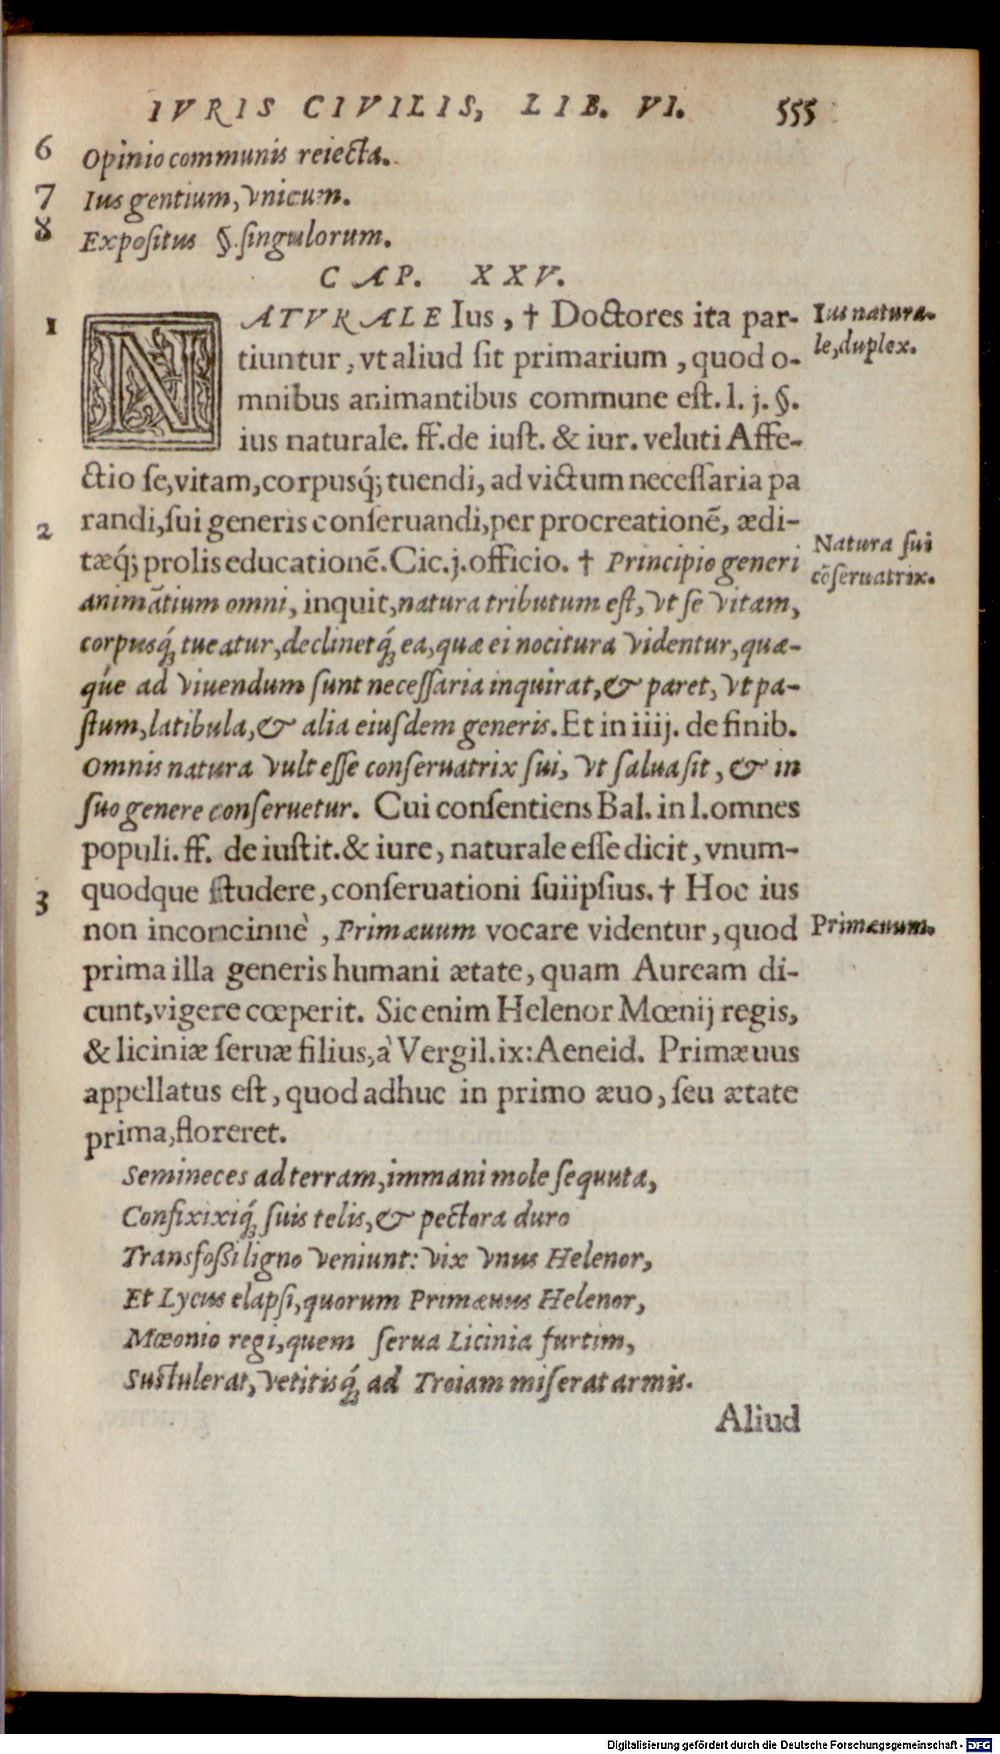 IVRIS CIVILIS, LIB. VI. 555
6 Opinio communis reiecta.
7 Ius gentium, vnicum.
8 Expositus §. singulorum.
CAP. XXV.
1 NATVRALE Ius, † Doctores ita par-
Ius natura-
tiuntur, vt aliud sit primarium, quod o-
le, duplex.
mnibus animantibus commune est. l. j. §.
ius naturale. ff. de iust. & iur. veluti Affe-
ctio se, vitam, corpusq́; tuendi, ad victum necessaria pa
2 randi, sui generis conseruandi, per procreationẽ, ædi-
Natura sui
tæq́; prolis educationẽ. Cic. j. officio. † Principio generi
cõseruatrix.
animãtium omni, inquit, natura tributum est, vt se vitam,
corpusq́; tueatur, declinetq́; ea, quæ ei nocitura videntur, quæ-
q́ue ad viuendum sunt necessaria inquirat, & paret, vt pa-
stum, latibula, & alia eiusdem generis. Et in iiij. de finib.
Omnis natura vult esse conseruatrix sui, vt salua sit, & in
suo genere conseruetur. Cui consentiens Bal. in l. omnes
populi. ff. de iustit. & iure, naturale esse dicit, vnum-
3 quodque studere, conseruationi suiipsius. † Hoc ius
non inconcinnè, Primæuum vocare videntur, quod
Primæuum.
prima illa generis humani ætate, quam Auream di-
cunt, vigere cœperit. Sic enim Helenor Mœnij regis,
& liciniæ seruæ filius, à Vergil. ix: Aeneid. Primæuus
appellatus est, quod adhuc in primo æuo, seu ætate
prima, floreret.
Semineces ad terram, immani mole sequuta,
Confixixiq́; suis telis, & pectora duro
Transfossi ligno veniunt: vix vnus Helenor,
Et Lycus elapsi, quorum Primæuus Helenor,
Mæonio regi, quem serua Licinia furtim,
Sustulerat, vetitisq́; ad Troiam miserat armis.
Aliud
Digitalisierung gefördert durch die Deutsche Forschungsgemeinschaft - DFG